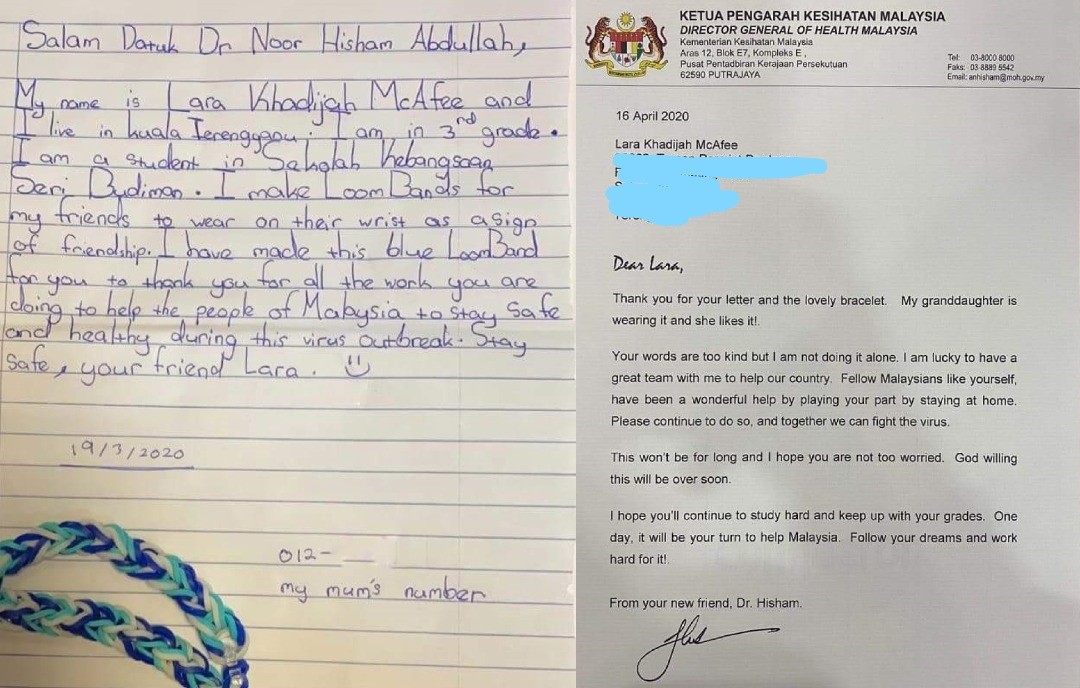 Salam Datuk Dr Noor Hisham Abdullah,
My name is Lara Khadijah McAfee and
I live in kuala Terengganu. I am in 3rd grade.
I am a student in Sekolah Kebangsaan
Seri Budiman. I make LoomBands for
my friends to wear on their wrist as a sign
of friendship. I have made this blue LoomBand
for you to thank you for all the work you are
doing to help the people of Malaysia to stay safe
and healthy during this virus outbreak. Stay
safe, your friend Lara.
19/3/2020
012-
my mum's number
KETUA PENGARAH KESIHATAN MALAYSIA
DIRECTOR GENERAL OF HEALTH MALAYSIA
Kementerian Kesihatan Malaysia
Aras 12, Blok E7, Kompleks E,
Pusat Pentadbiran Kerajaan Persekutuan
62590 PUTRAJAYA
Tel: 03-8000 8000
Faks: 03 8889 5542
Email: anhisham@moh.gov.my
16 April 2020
Lara Khadijah McAfee
Dear Lara,
Thank you for your letter and the lovely bracelet. My granddaughter is
wearing it and she likes it!.
Your words are too kind but I am not doing it alone. I am lucky to have a
great team with me to help our country. Fellow Malaysians like yourself,
have been a wonderful help by playing your part by staying at home.
Please continue to do so, and together we can fight the virus.
This won't be for long and I hope you are not too worried. God willing
this will be over soon.
I hope you'll continue to study hard and keep up with your grades. One
day, it will be your turn to help Malaysia. Follow your dreams and work
hard for it!.
From your new friend, Dr. Hisham.